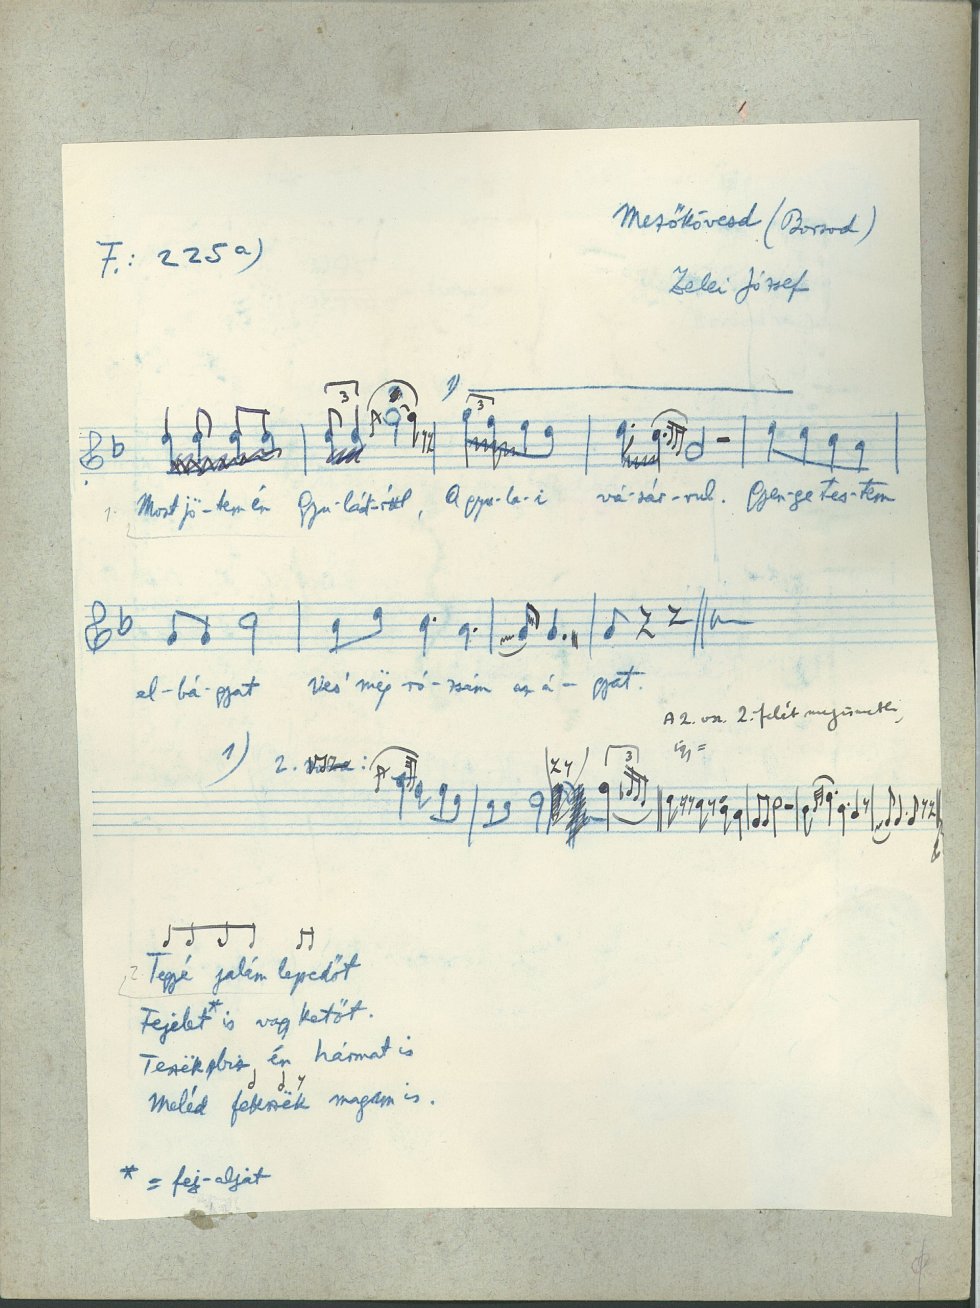 Mezőkövesd (Borsod)
F.: 225 a)
Zelei József
3
1)
3
1. Most jö-tem én Gyu-lát-rúl, A gyu-la-i vá-sár-rul. Gyen-ge tes-tem
el-bá-gyat ró-zsám az á-gyat.
A 2. vsz. 2. felét megismétli,
így =
1) 2. vsza :
3
2. Tegyé jalám lepedőt
Fejelet* is vagy ketőt.
én hármat is
Meléd fekszëk magam is.
* = fej-alját